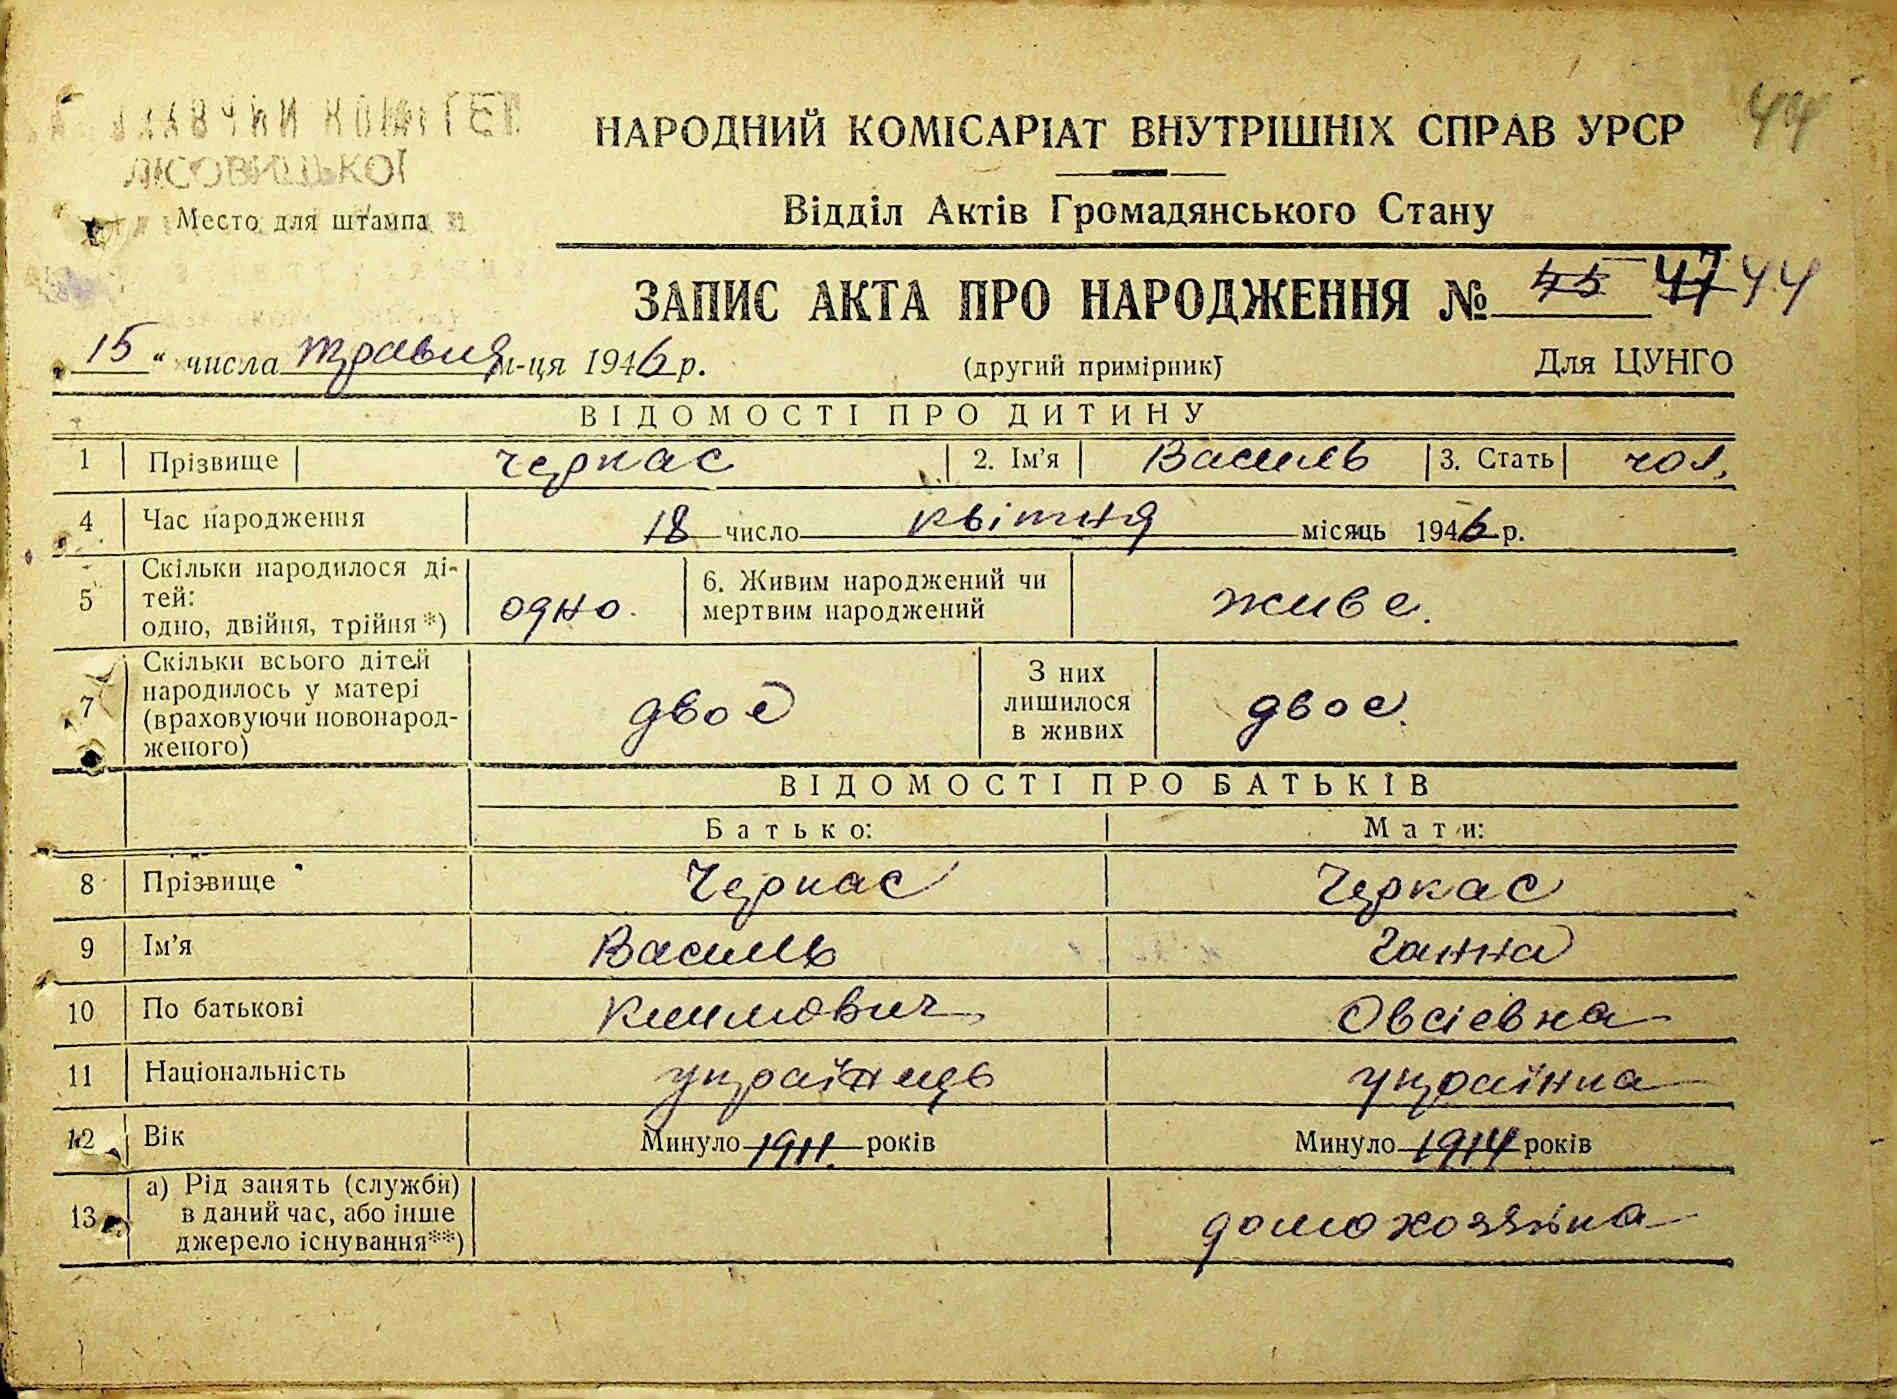 44
НАРОДНИЙ КОМІСАРІАТ ВНУТРІШНІХ СПРАВ УРСР
ЛІСОВИЦЬКОЇ
Место для штампа
Відділ Актів Громадянського Стану
ЗАПИС АКТА ПРО НАРОДЖЕННЯ № 45 47 44
„15“ числа травня м-ця 1946 р. (другий примірник) Для ЦУНГО
ВІДОМОСТІ ПРО ДИТИНУ
1 Прізвище Черкас 2. Ім’я Василь 3. Стать чол.
4 Час народження 18 число квітня місяць 1946 р.
5 Скільки народилося ді-
тей:
одно, двійня, трійня*) одно. 6. Живим народжений чи
мертвим народжений живе.
7 Скільки всього дітей
народилось у матері
(враховуючи новонарод-
женого) двоє З них
лишилося
в живих двоє.
ВІДОМОСТІ ПРО БАТЬКІВ
Батько: Мати:
8 Прізвище Черкас Черкас
9 Ім’я Василь Ганна
10 По батькові Климович Овсіевна
11 Національність українець українка
12 Вік Минуло 1911 років Минуло 1914 років
13 а) Рід занять (служби)
в даний час, або інше
джерело існування**) домохозяйка